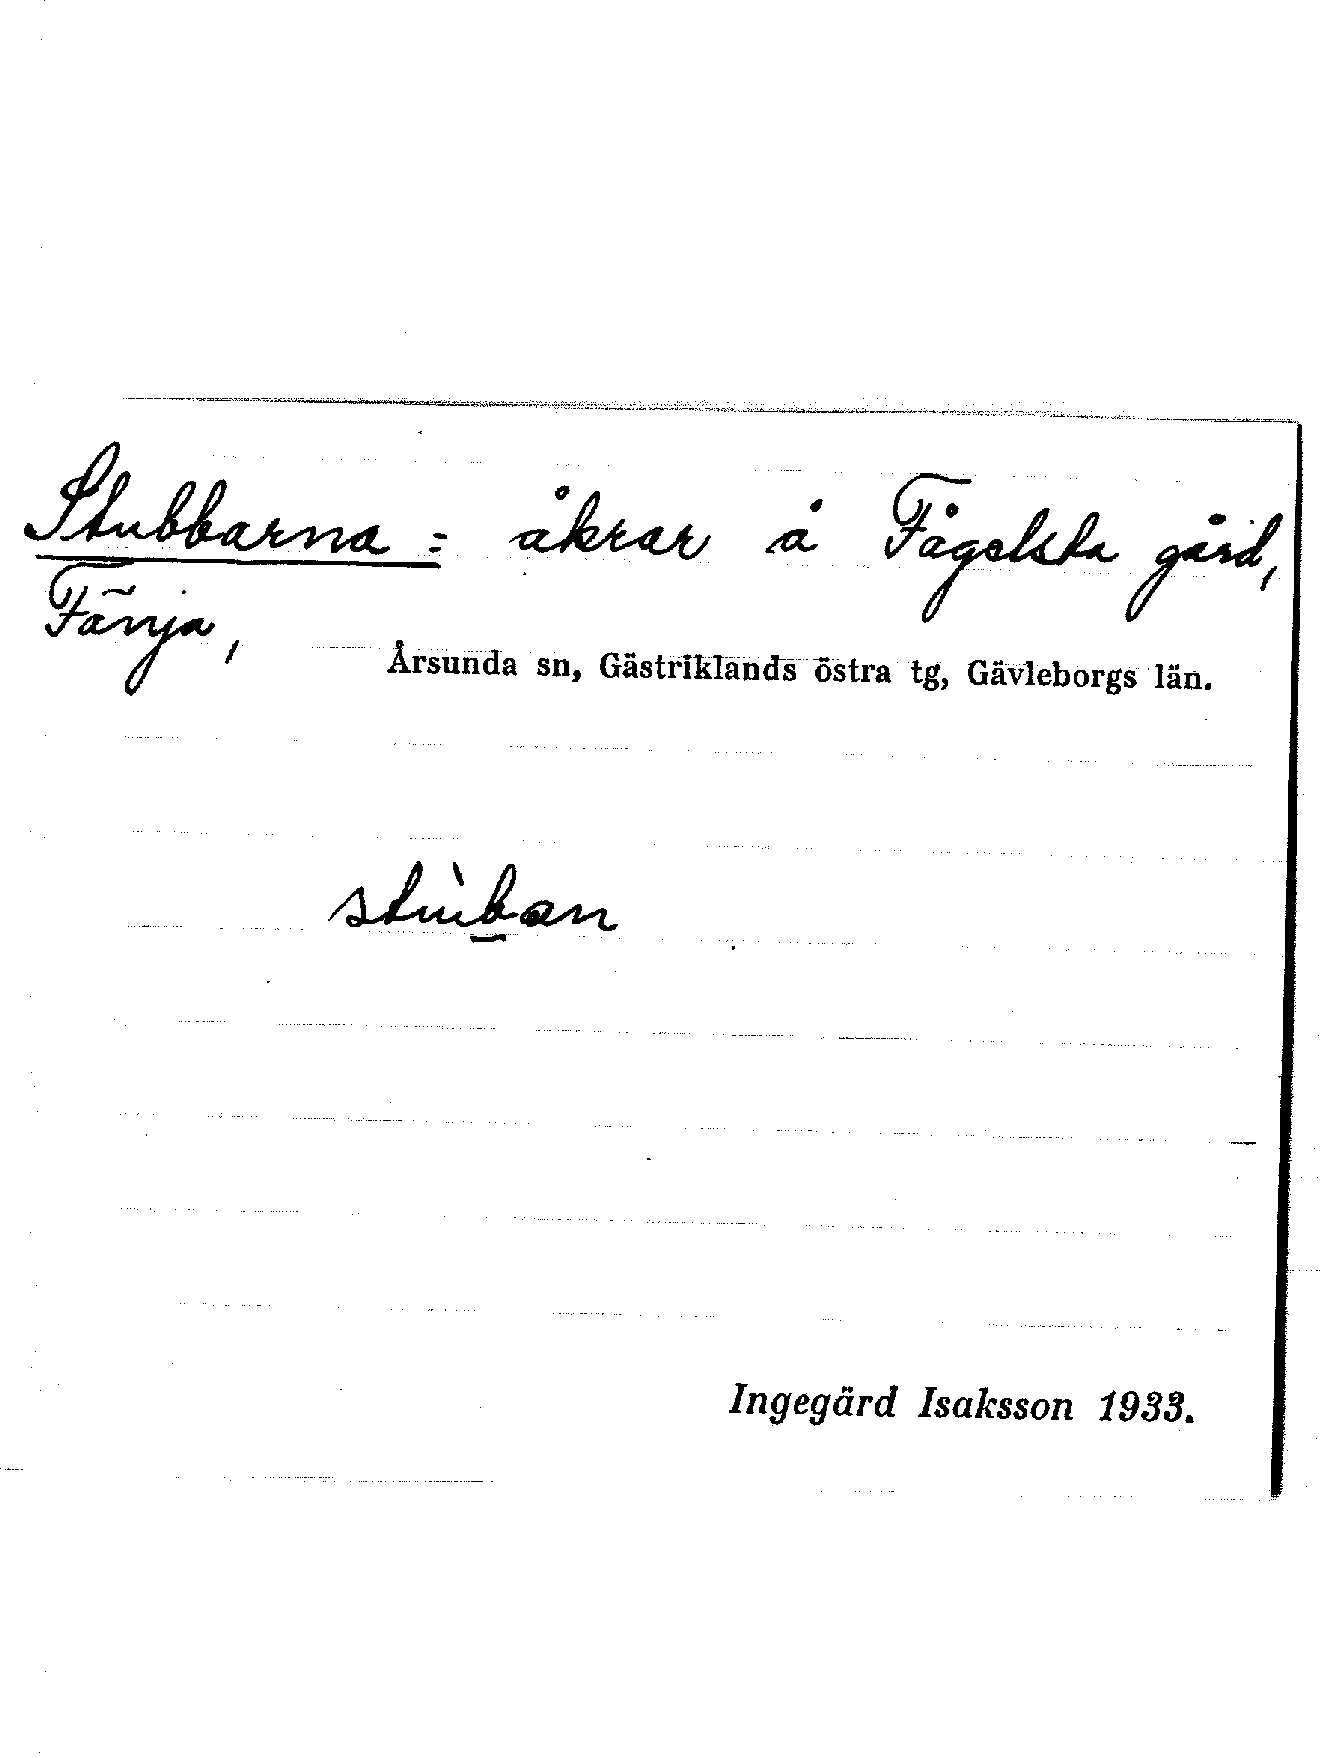 Stubbarna = åkrar å Fågelsta gård,
Fänja,
Årsunda sn, Gästriklands östra tg, Gävleborgs län.
stùban
Ingegärd Isaksson 1933.